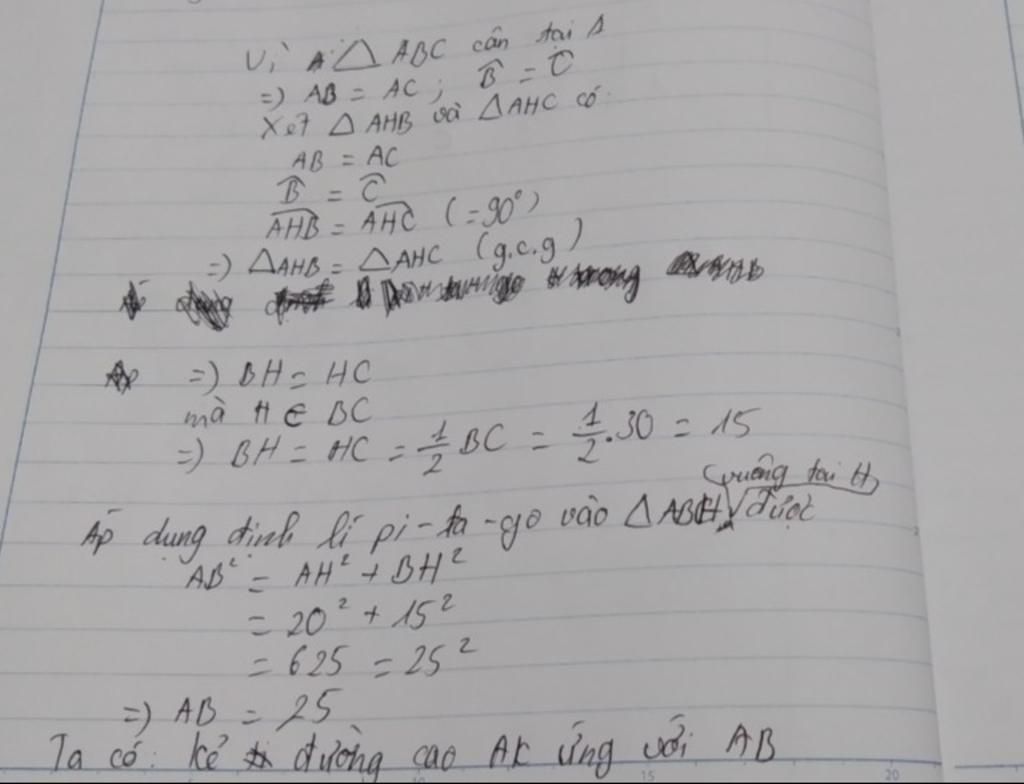 Vì △ ABC cân tại A
=) AB = AC ; B̂ = Ĉ
Xét △ AHB và △ AHC có
AB = AC
B̂ = Ĉ
AHB = AHC (= 90°)
=) △AHB = △AHC (g.c.g)
=) BH = HC
mà H ∈ BC
=) BH = HC = 1/2 BC = 1/2 . 30 = 15
(vuông tại H)
Áp dụng định lí pi-ta-go vào △ ABH được
AB² = AH² + BH²
= 20² + 15²
= 625 = 25²
=) AB = 25
Ta có: kẻ đường cao AK ứng với AB